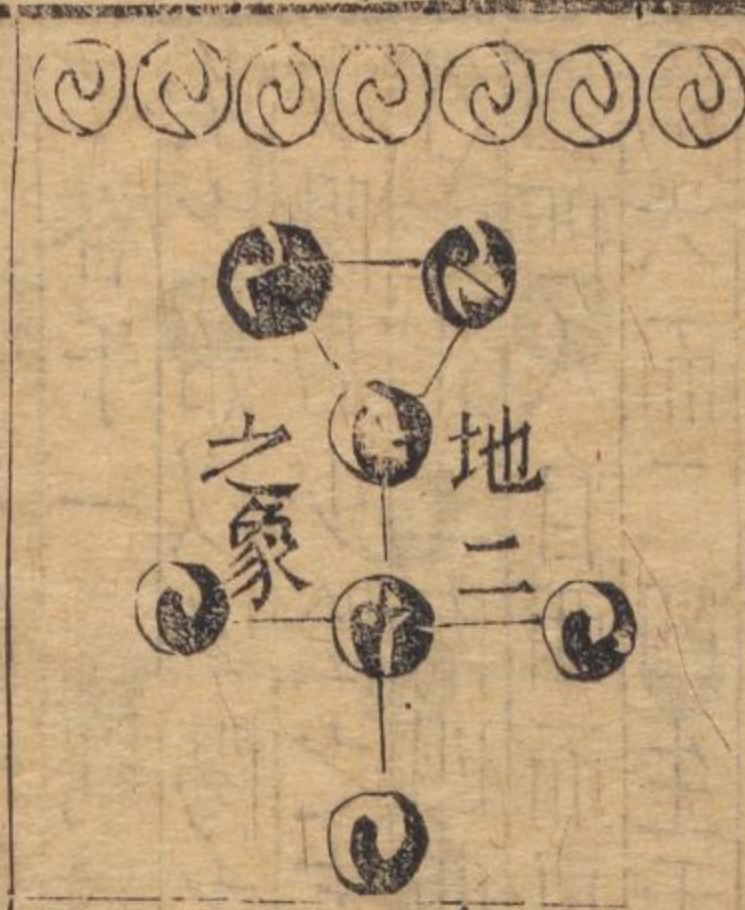 地二
之象